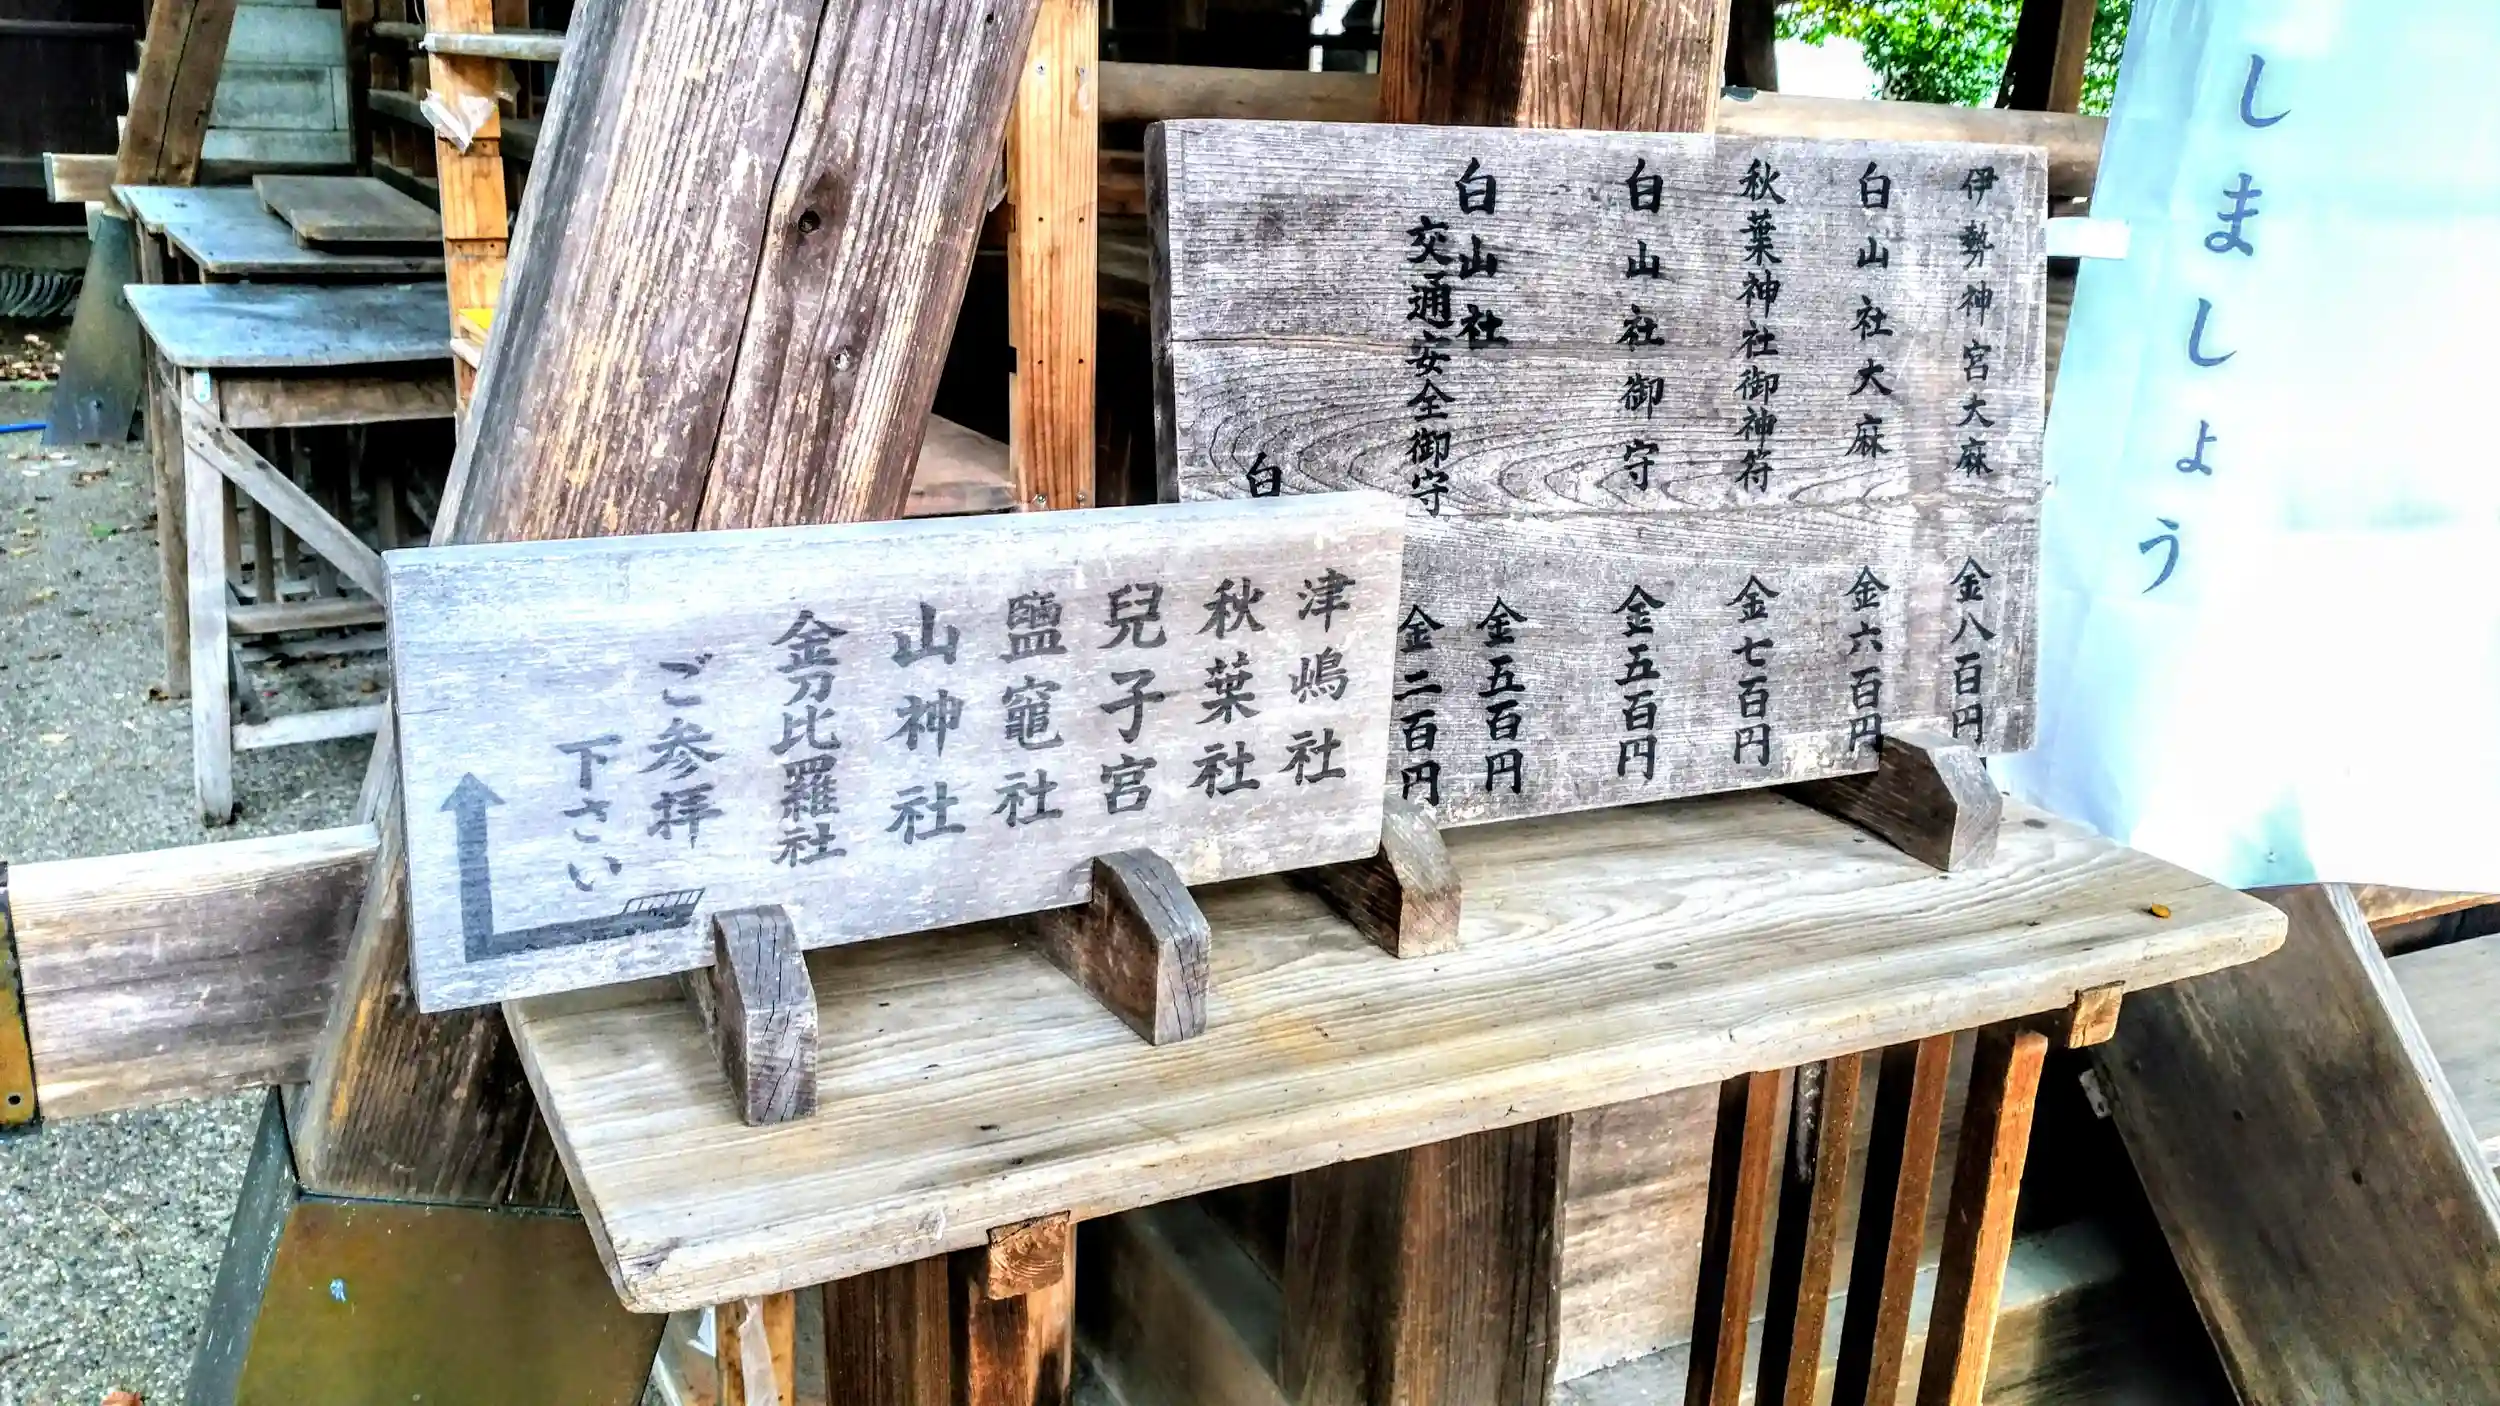 しましょう
伊勢神宮大麻 金八百円
白山社大麻 金六百円
秋葉神社御神符 金七百円
白山社御守 金五百円
白山社 金五百円
交通安全御守 金二百円
白
津嶋社
秋葉社
兒子宮
鹽竈社
山神社
金刀比羅社
ご参拝
下さい